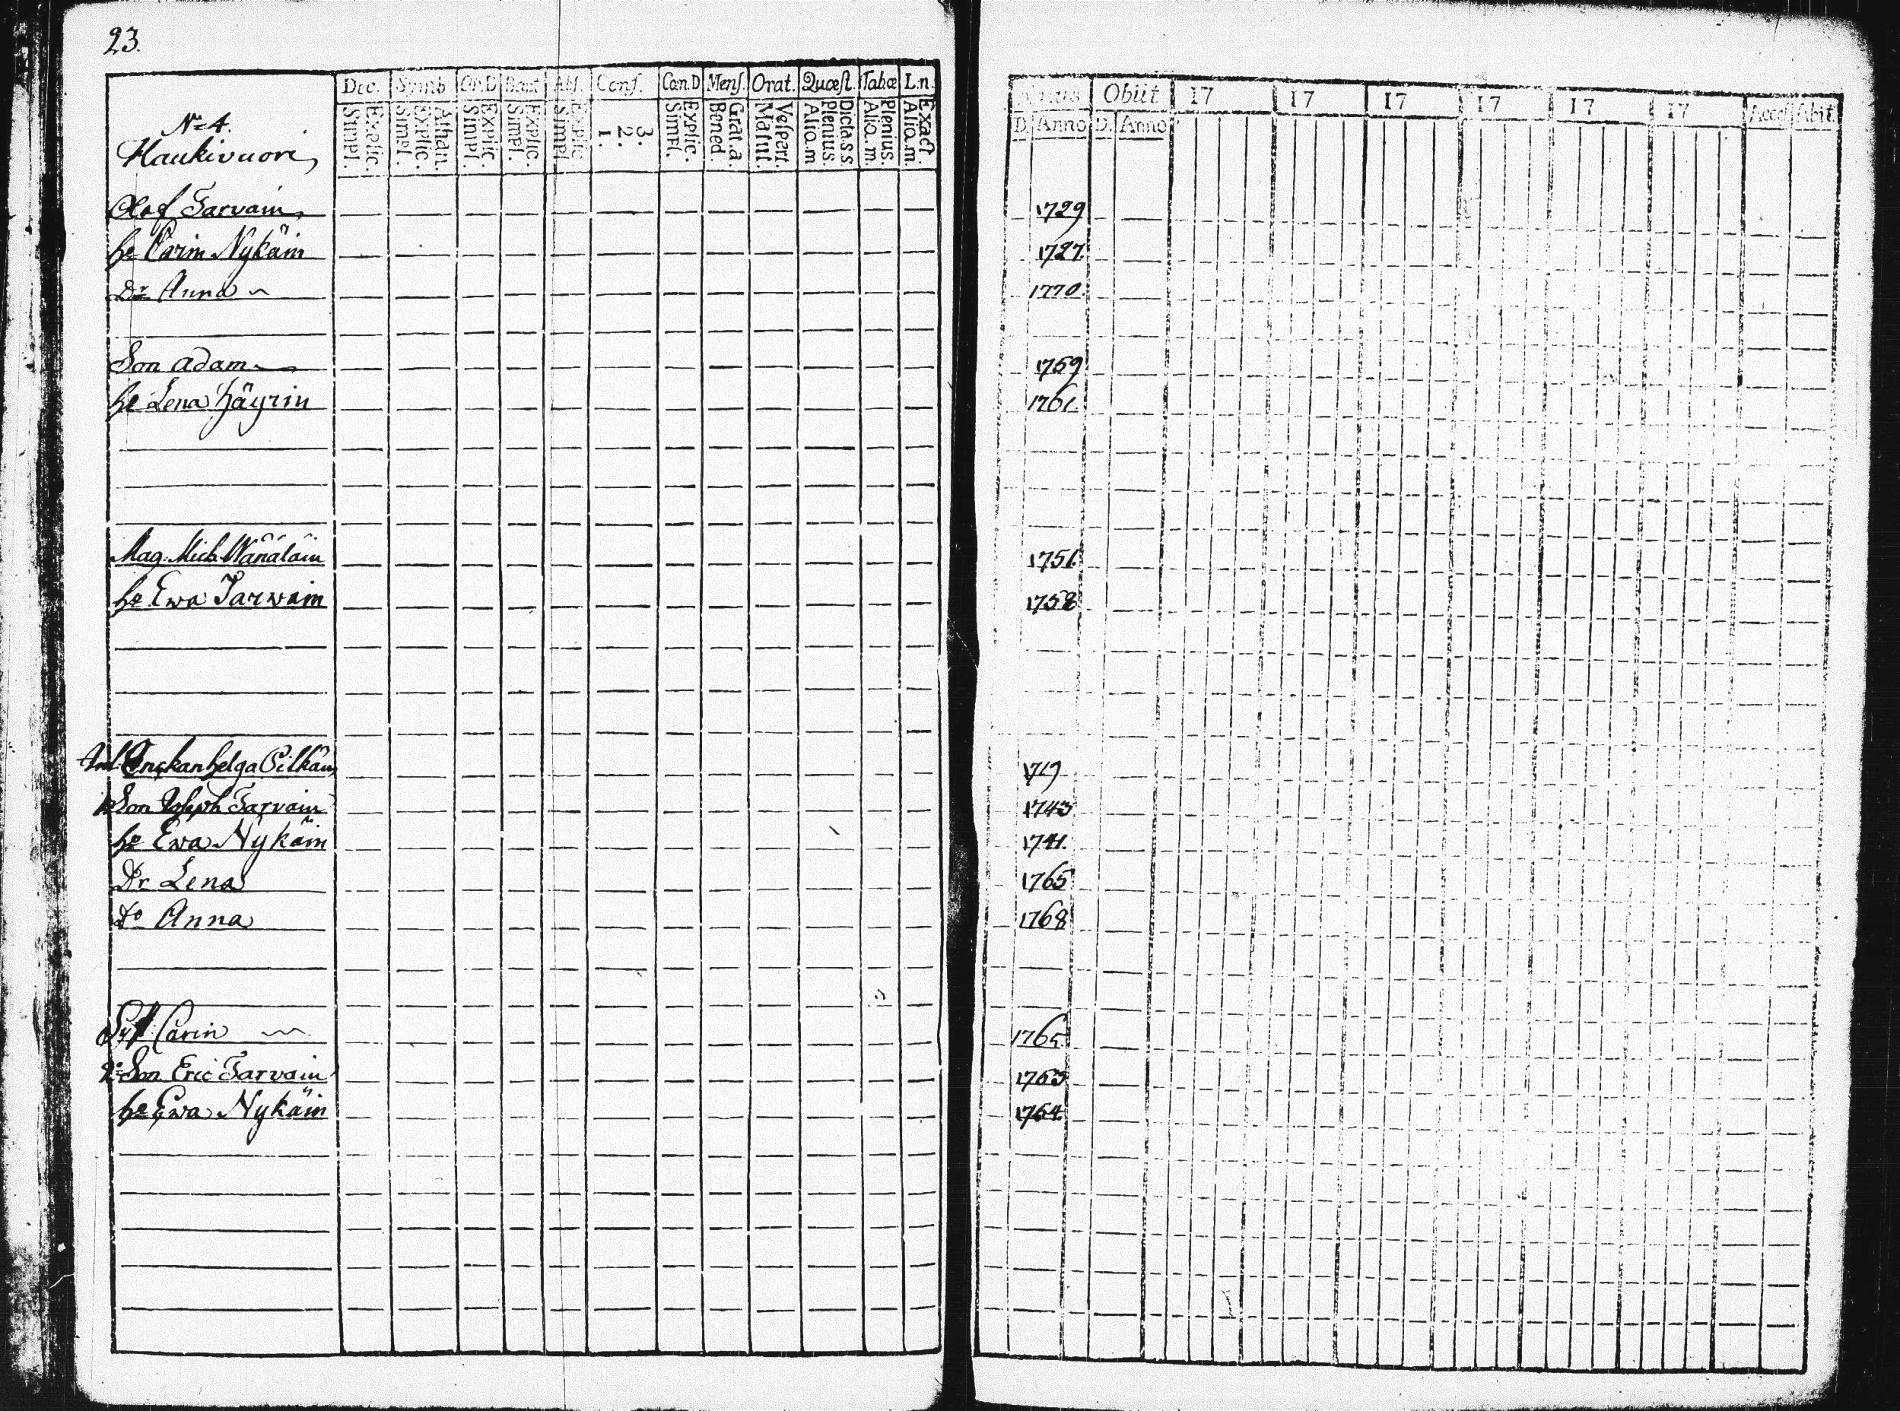 23.
Dec. Symb Or.D Bapt. Abs. Conf. Can.D Mens. Orat. Quæst. Tabæ L.n.
Simpl. Explic. Simpl. Explic. Athan. Simpl. Explic. Simpl. Explic. Simpl. Explic. 1. 2. 3. Simpl. Explic. Bened. Grat.a. Matut. Vespert. Alio.m Plenius. Dicta.s.s Alio.m. Plenius. Alio.m Exact.
No 4.
Haukivuori
Natus Obiit 17 17 17 17 17 17 Acced Abit
D. Anno D. Anno
Olof Tarvain 1729
he Carin Nykäin 1727
Dr Anna 1770
Son Adam 1759
he Lena Häyrin 1761
Mag. Mich. Wänäläin 1751
he Ewa Tarwain 1758
Enckan helga Pilkäin 1719
1 Son Joseph Tarvain 1743
he Ewa Nykäin 1741
Dr Lena 1765
Do Anna 1768
Syst. Carin 1765
2 Son Eric Tarvain 1763
he Ewa Nykäin 1764